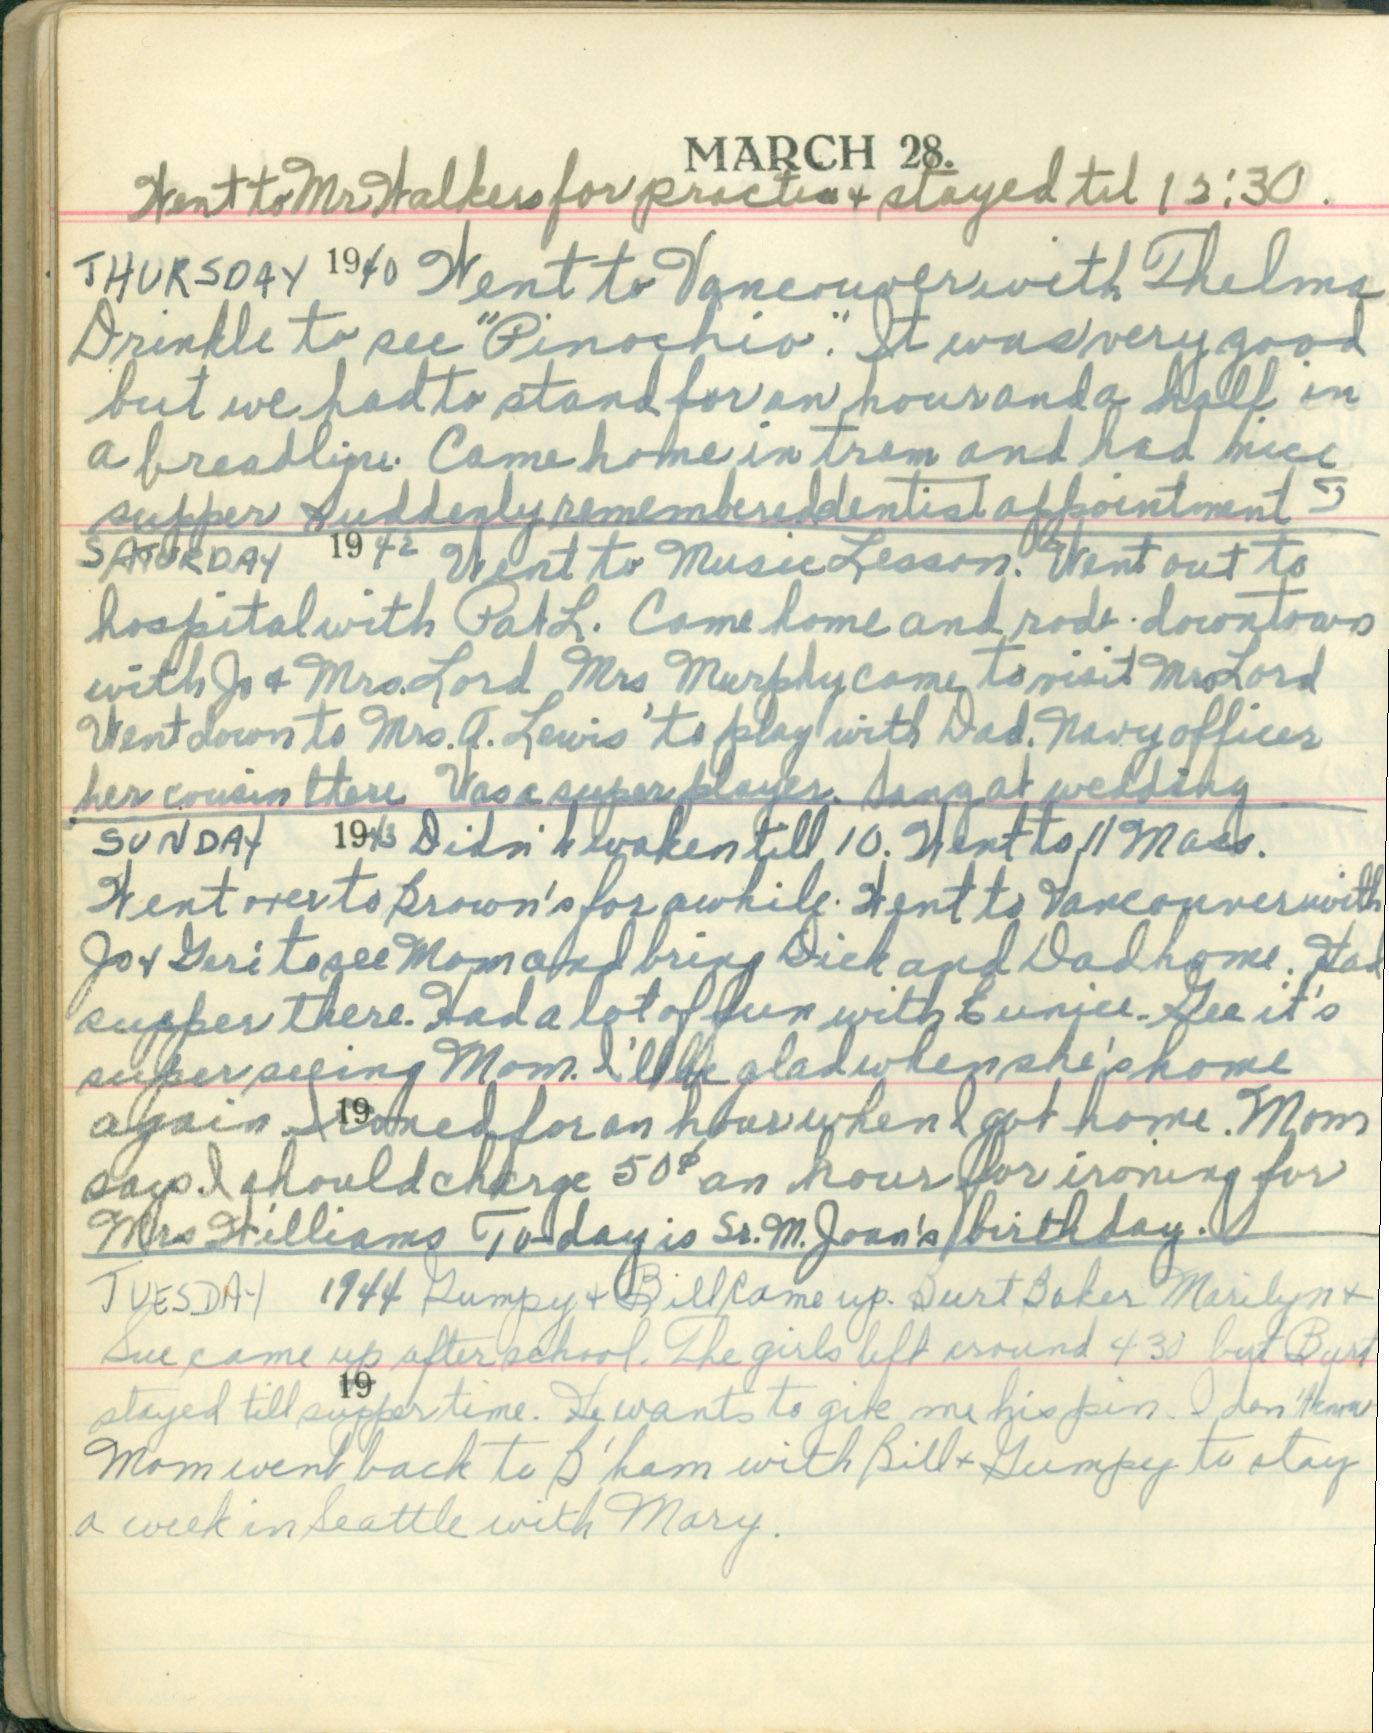 MARCH 28.
Went to Mr. Walkers for practice & stayed til 12:30.
THURSDAY 1940 Went to Vancouver with Thelma
Drinkle to see "Pinochio". It was very good
but we had to stand for an hour and a half in
a breadline. Came home in tram and had nice
supper & suddenly remembered dentist appointment
SATURDAY 1942 Went to Music Lesson. Went out to
hospital with Pat L. Came home and rode downtown
with Jo & Mrs. Lord Mrs Murphy came to visit Mrs Lord
Went down to Mrs. A. Lewis' to play with Dad. Navy officer
her cousin there Was a super player. Sang at wedding
SUNDAY 1943 Didn't waken till 10. Went to 11 Mass.
Went over to Brown's for awhile. Went to Vancouver with
Jo & Geri to see Mom and bring Dick and Dad home. Had
supper there. Had a lot of fun with Eunice. Gee it's
super seeing Mom. I'll be glad when she's home
again. 19 Ironed for an hour when I got home. Mom
says I should charge 50¢ an hour for ironing for
Mrs Williams To-day is Sr. M. Joan's birthday.
TUESDAY 1944 Gumpy & Bill came up. Burt Baker Marilyn &
Sue came up after school. The girls left around 4 30 but Burt
19
stayed till supper time. He wants to give me his pin. I don't know
Mom went back to B'ham with Bill & Gumpy to stay
a week in Seattle with Mary.